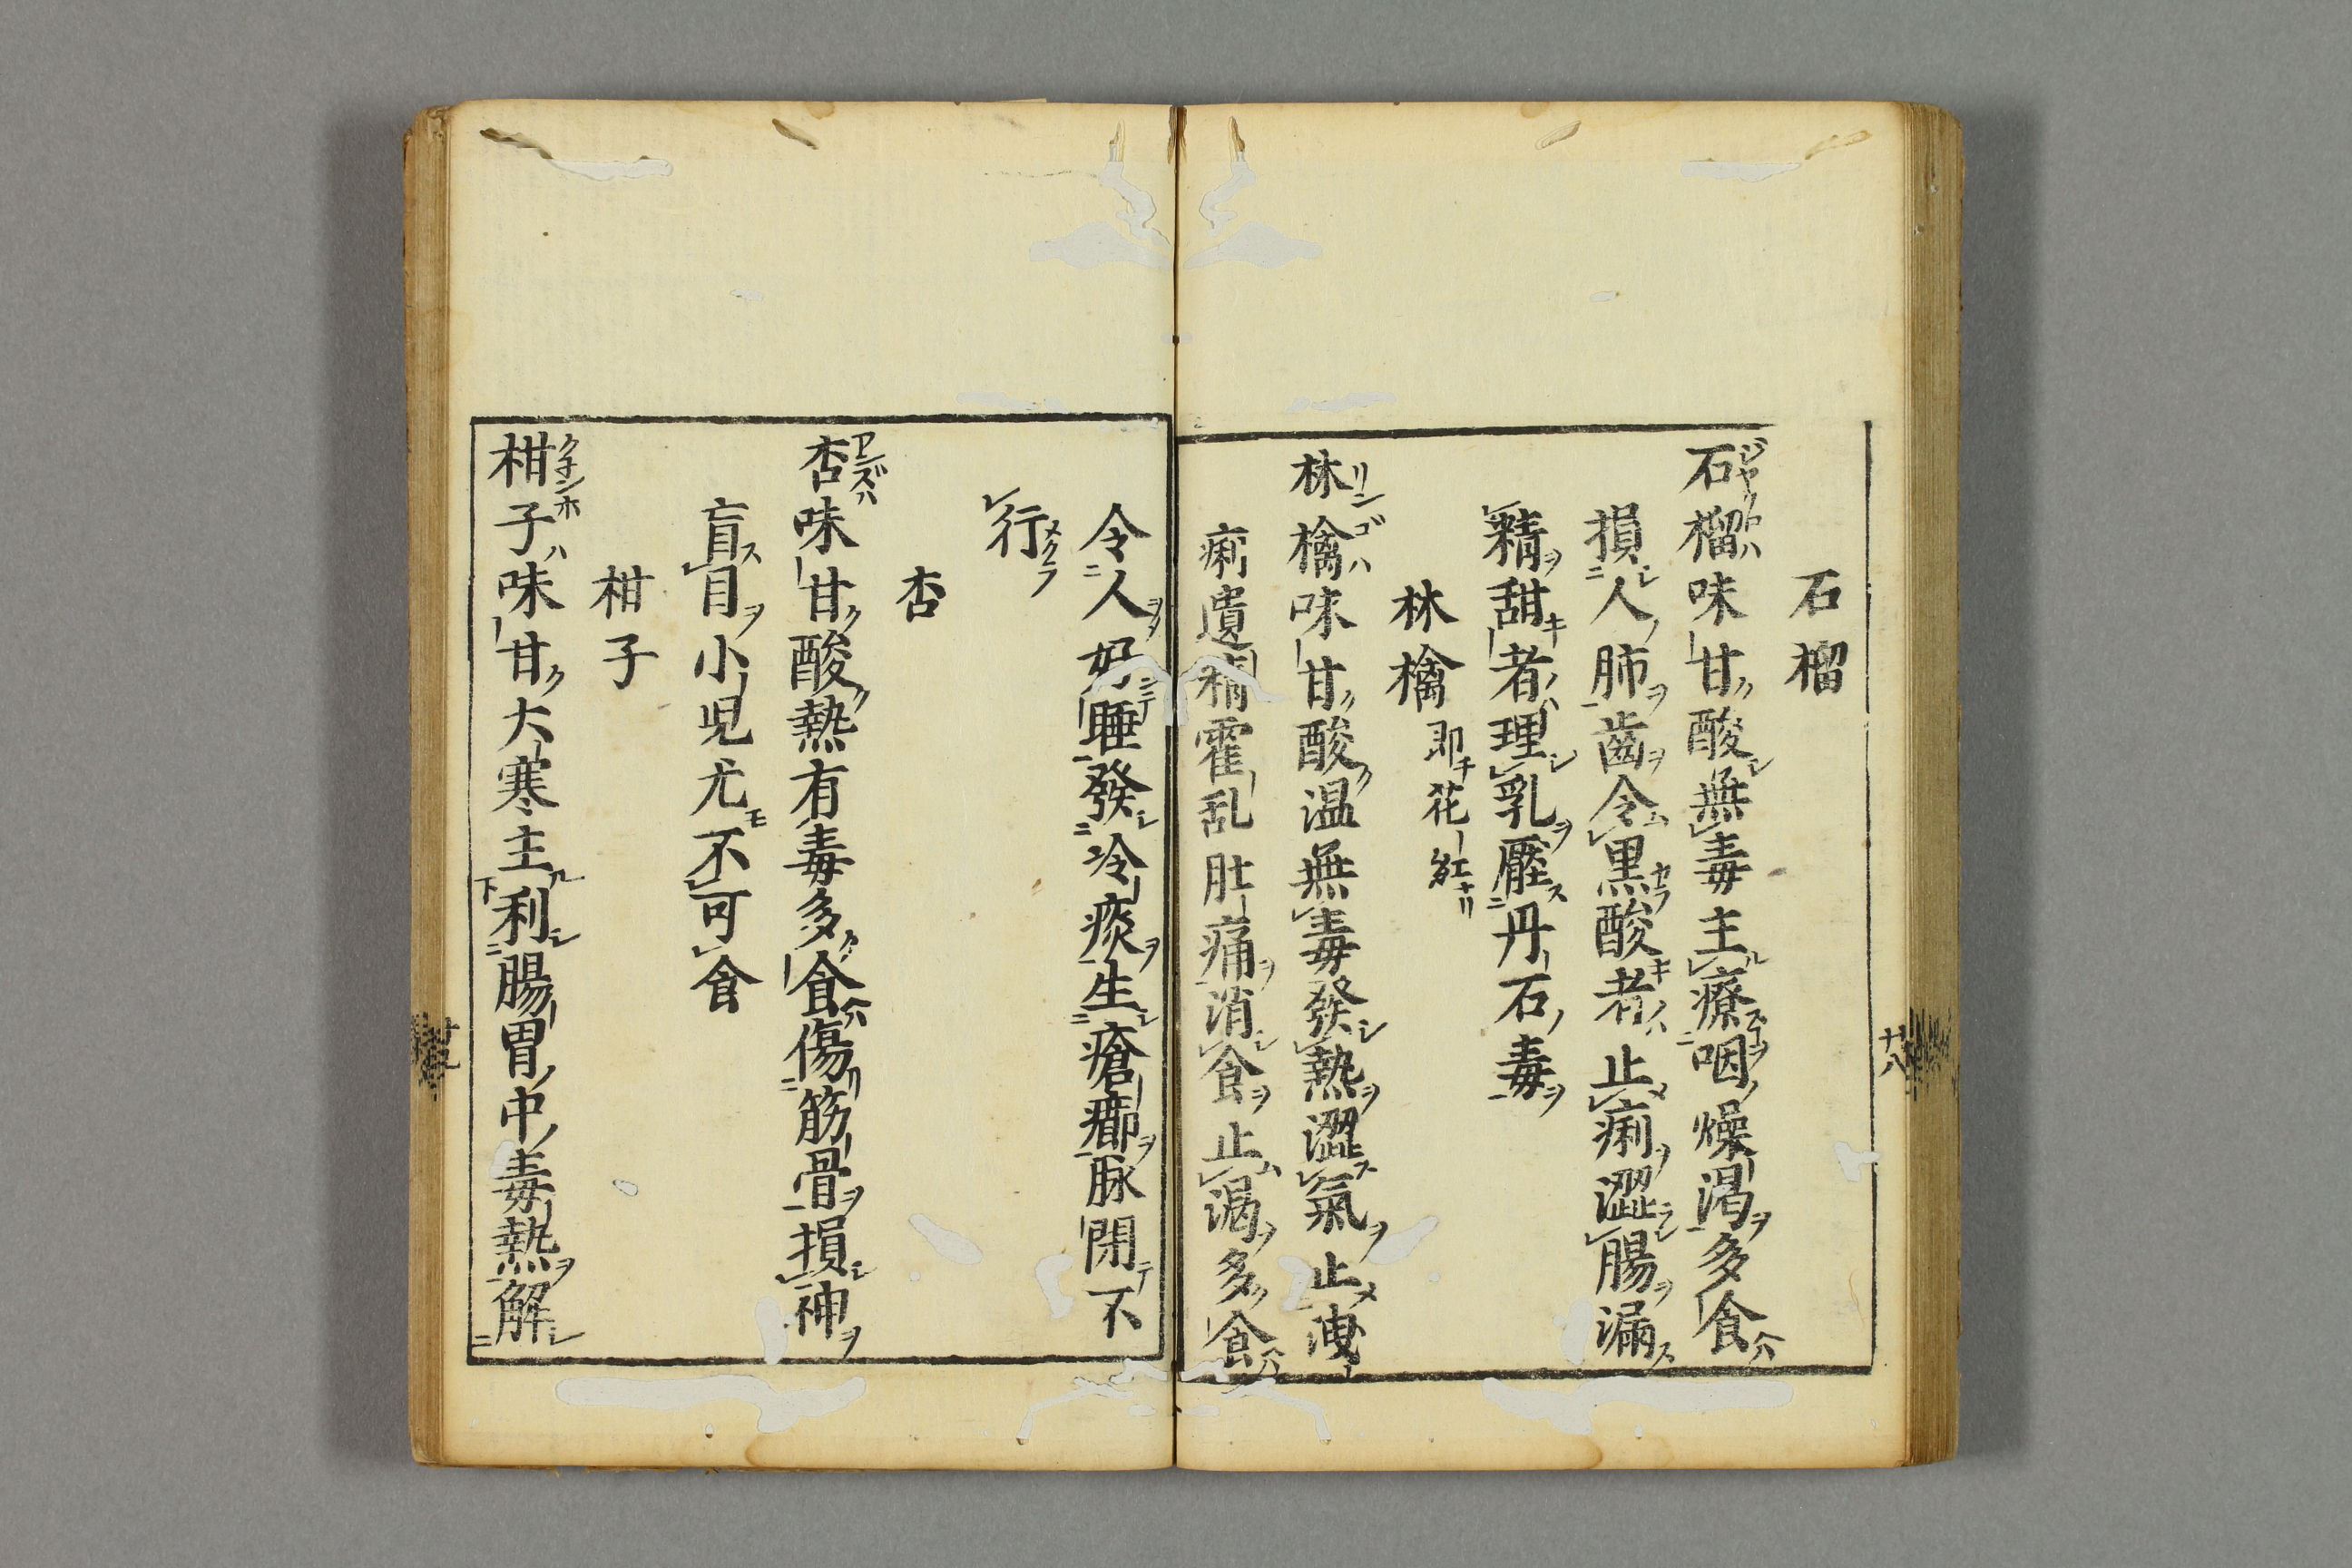 石榴
石榴味甘酸無毒主療咽燥渇多食
損人肺歯令黒酸者止痢澀腸漏
精甜者理乳壓丹石毒
林檎即花紅
林檎味甘酸温無毒發熱澀氣止洩
痢遺精霍乱肚痛消食止渇多食
廿八
令人好睡發冷痰生瘡癤脉閉不
行
杏
杏味甘酸熱有毒多食傷筋骨損神
盲目小児尤不可食
柑子
柑子味甘大寒主利腸胃中毒熱解